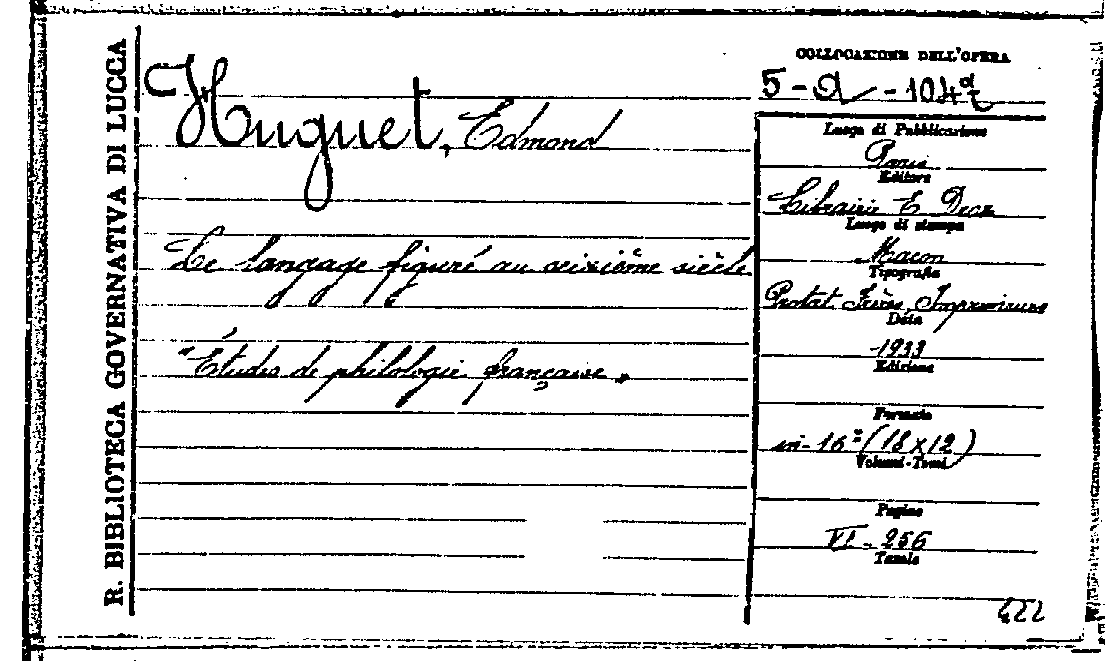 R. BIBLIOTECA GOVERNATIVA DI LUCCA
Huguet, Edmond
Le langage figuré au seizième siècle
"Études de philologie française"
COLLOCAZIONE DELL'OPERA
5 - a - 104
Luogo di Pubblicazione
Paris
Editore
Librairie E. Droz
Luogo di stampa
Macon
Tipografia
Protat Frères, Imprimeurs
Data
1933
Edizione
Formato
in-16º (18 x 12)
Volumi-Tomi
Pagine
VI - 256
Tavole
422